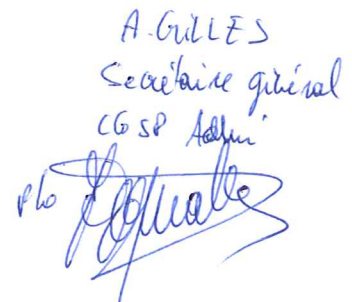 A. GILLES
Secrétaire général
CGSP Admi
p/o